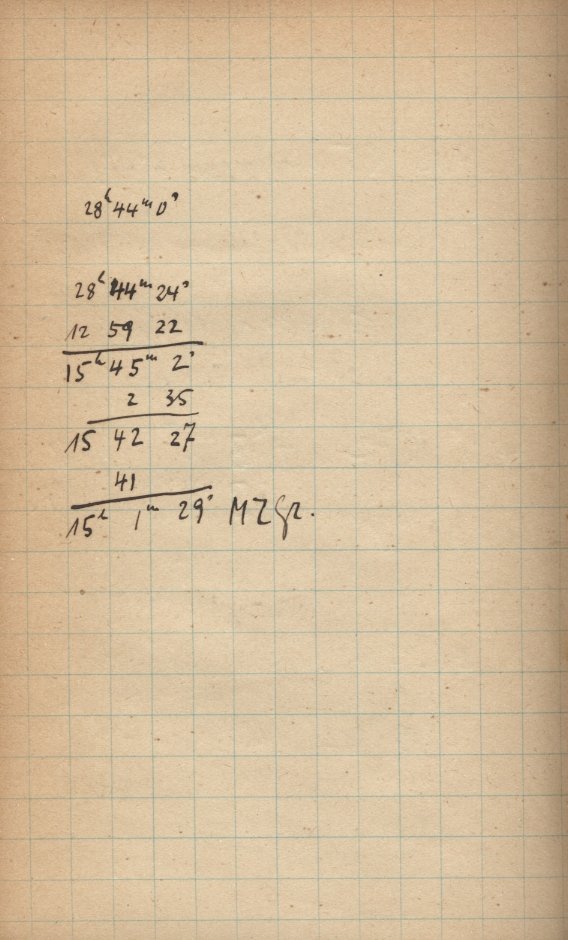 28ʰ 44ᵐ 0ˢ
28ʰ 44ᵐ 24ˢ
12 59 22
15ʰ 45ᵐ 2ˢ
2 35
15 42 27
41
15ʰ 1ᵐ 29ˢ MZGr.